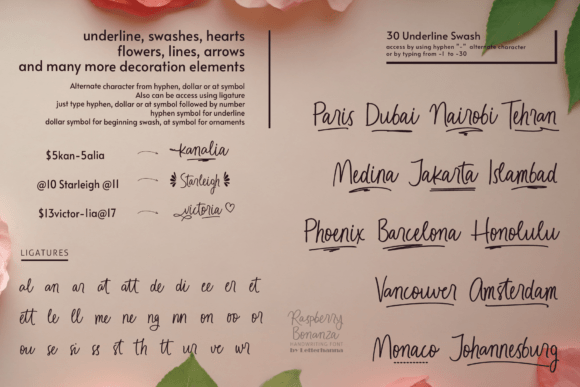 underline, swashes, hearts
flowers, lines, arrows
and many more decoration elements
Alternate character from hyphen, dollar or at symbol
Also can be access using ligature
just type hyphen, dollar or at symbol followed by number
hyphen symbol for underline
dollar symbol for beginning swash, at symbol for ornaments
$5kan-5alia
kanalia
@10 Starleigh @11
Starleigh
$13victor-1ia@17
victoria
LIGATURES
al an ar at att de di ee er et
ett le ll me ne ng nn on oo or
ou se si ss st th tt ur ve wr
30 Underline Swash
access by using hyphen "-" alternate character
or by typing from -1 to -30
Paris Dubai Nairobi Tehran
Medina Jakarta Islambad
Phoenix Barcelona Honolulu
Vancouver Amsterdam
Monaco Johannesburg
Raspberry
Bonanza
HANDWRITING FONT
by Letterhanna